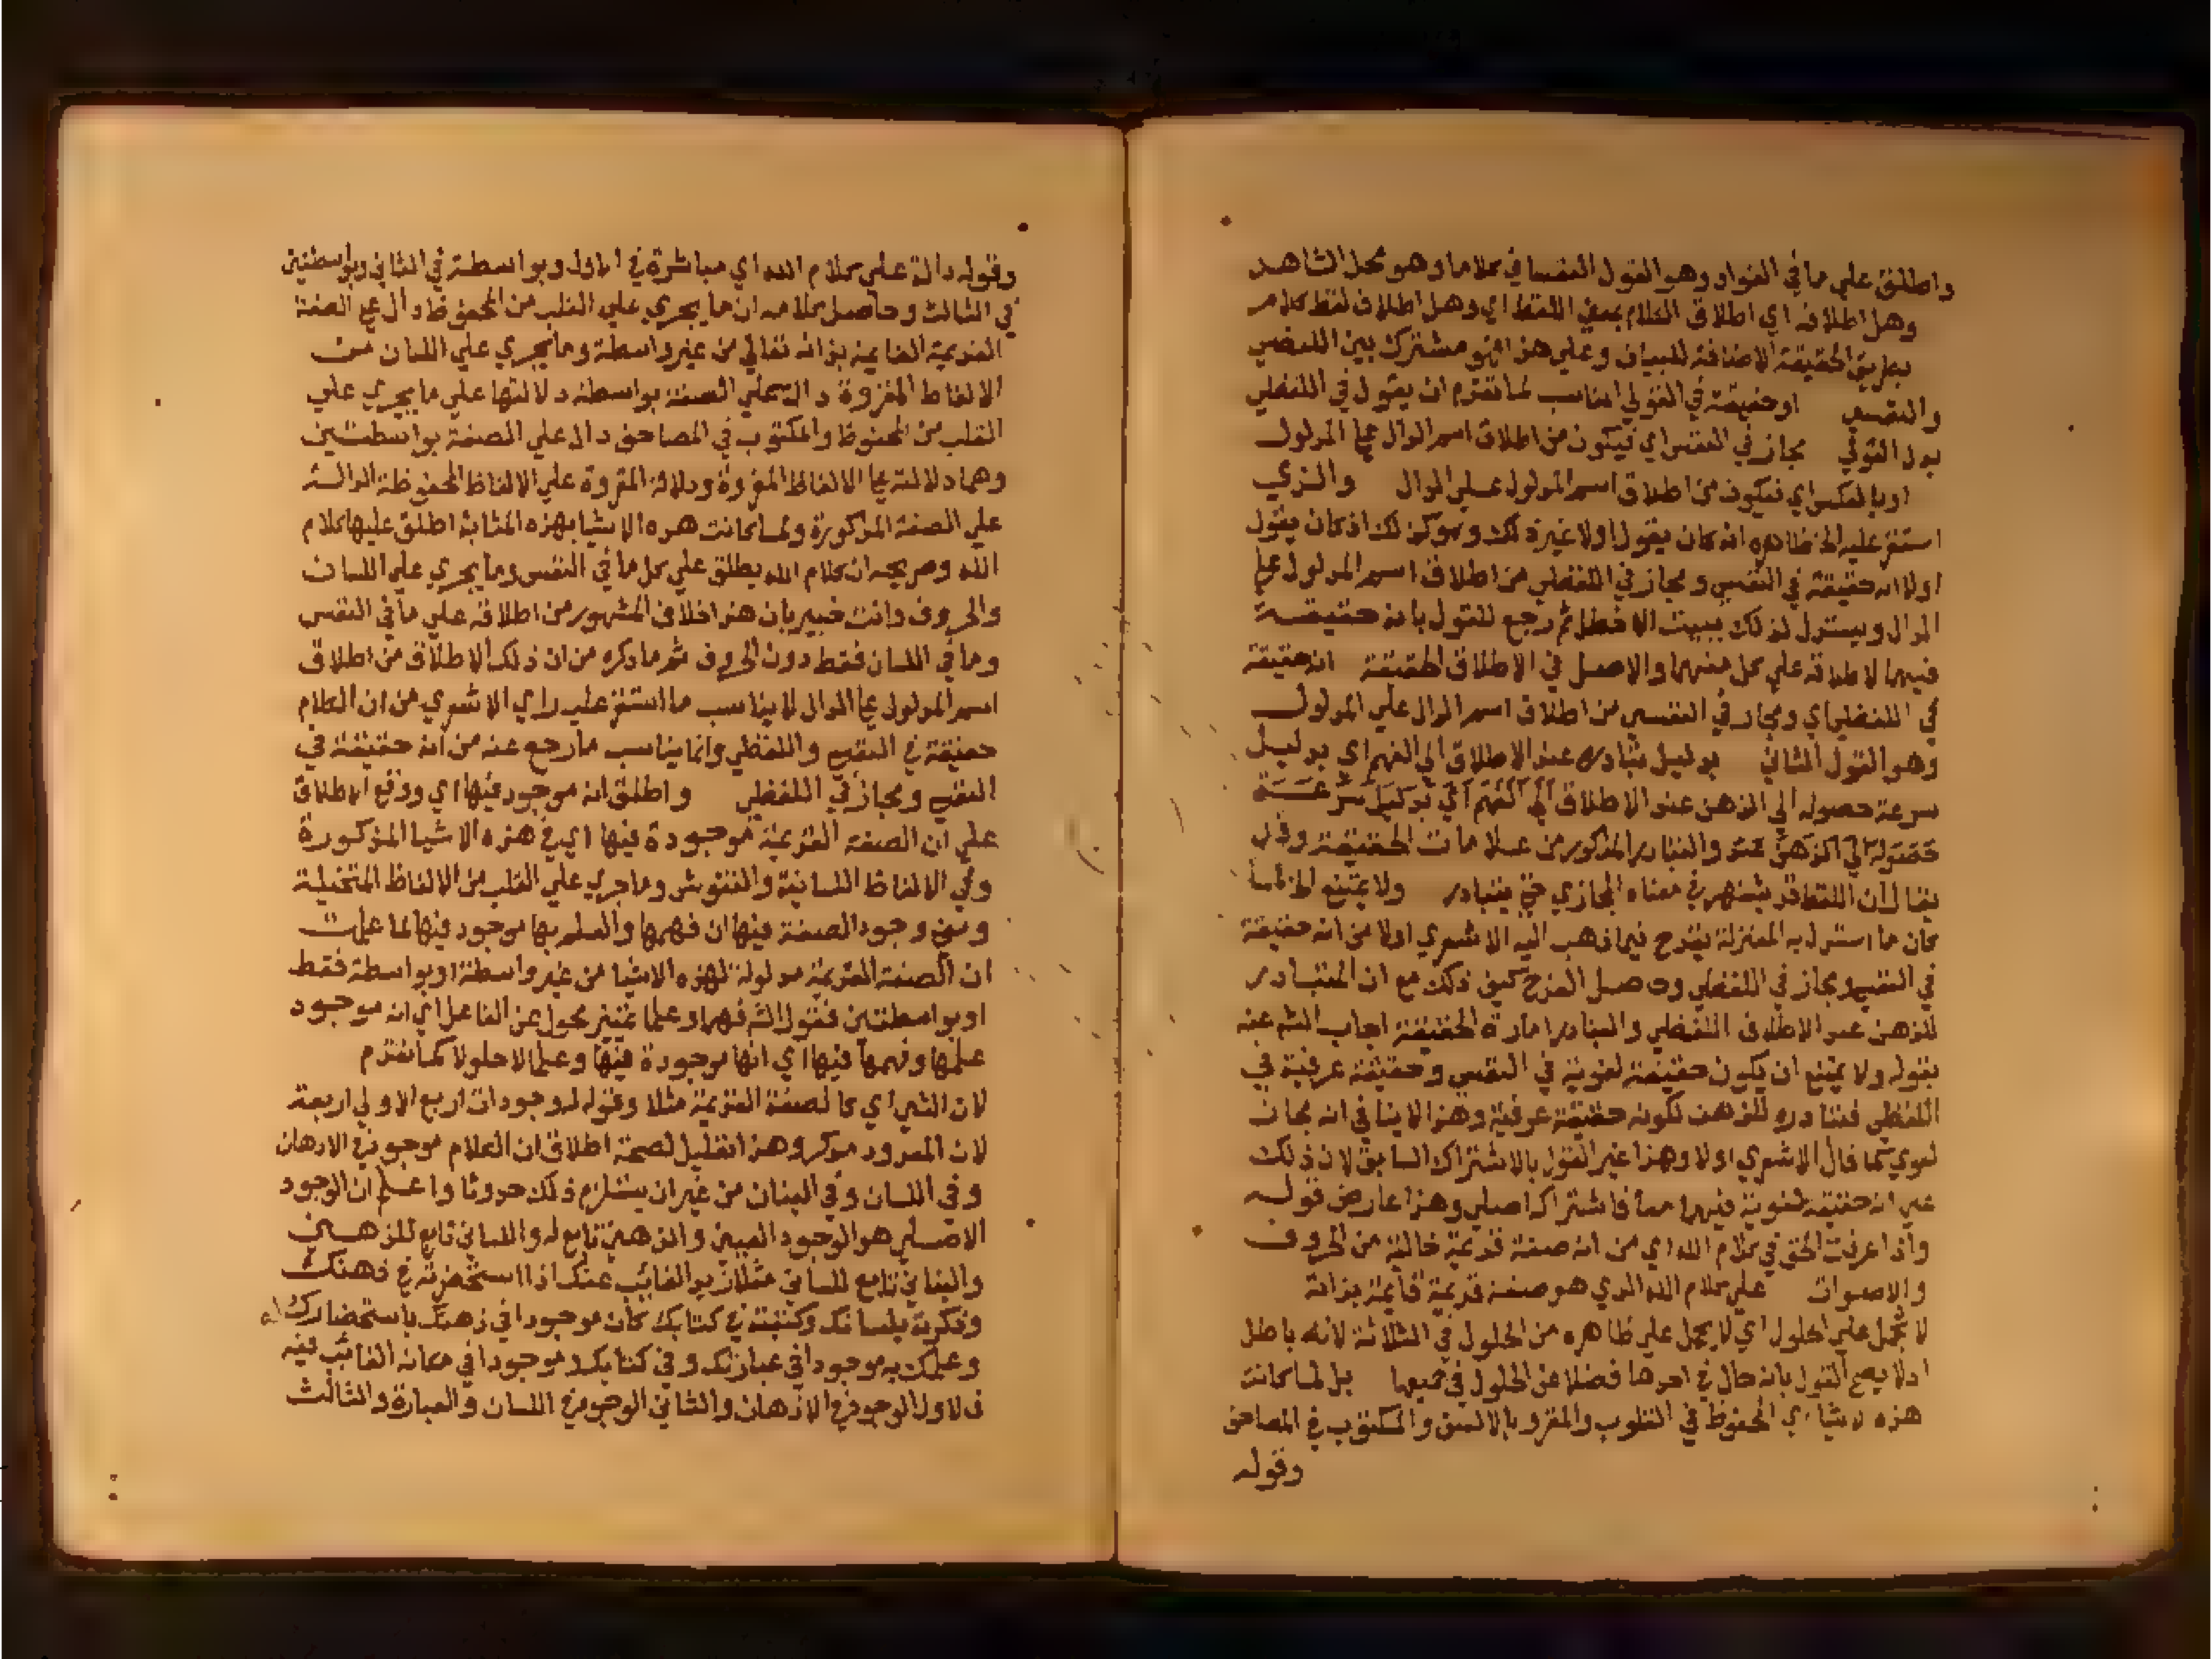 واطلق علي ما في الفواد وهو القول النفساني كلاما وهو محل الشاهد
وهل اطلاقه اي اطلاق الكلام بمعني اللفظ اي وهل اطلاق لفظ كلام
بطريق الحقيقة الاضافة للبيان وعلي هذا فهو مشترك بين اللفضي
والنفسي او حقيقة في القولي المناسب لما تقدم ان يقول في اللفظي
بدل القولي مجاز في النفس اي فيكون من اطلاق اسم الدال علي المدلول
او بالعكس اي فيكون من اطلاق اسم المدلول علي الدال والذي
استقر عليه الخ ظاهره انه كان يقول اولا غيره لك وهو كذلك اذ كان يقول
اولا انه حقيقة في النفسي ومجاز في اللفظي من اطلاق اسم المدلول علي
الدال ويستدل لذلك ببيت الاخطل ثم رجع للقول بانه حقيقة
فيهما لاطلاقه علي كل منهما والاصل في الاطلاق الحقيقة انه حقيقة
في اللفظي اي ومجاز في النفسي من اطلاق اسم الدال علي المدلول
وهو القول الثاني بدليل تبادره عند الاطلاق الي الفهم اي بدليل
سرعة حصوله الي الذهن عند الاطلاق الي الفهم اي بدليل سرعة
حصوله الي الذهن عند والتبادر المذكور من علامات الحقيقة وقد
يقال ان اللفظ قد يشتهر في معناه المجازي حتي يتبادر ولا يمتنع الخ لما
كان ما استدل به المعتزلة يقدح فيما ذهب اليه الاشعري اولا من انه حقيقة
في النفسي ومجاز في اللفظي وحاصل القدح كيف ذلك مع ان المتبادر
للذهن عند الاطلاق اللفظي والتبادر امارة الحقيقة اجاب الشم عنه
بقوله ولا يمتنع ان يكون حقيقة لغوية في النفس وحقيقة عرفية في
اللفظي فتبادره للذهن لكونه حقيقة عرفية وهذا لا ينافي انه مجاز
لغوي كما قال الاشعري اولا وهذا غير القول بالاشتراك السابق لان ذلك
علي انه حقيقة لغوية فيهما معا فاشتراكه اصلي وهذا عارض قوله
واذا عرفت الحق في كلام الله اي من انه صفة قديمة خالية من الحروف
والاصوات علي كلام الله الذي هو صفة قديمة قايمة بذاته
لا تحمل علي الحلول اي لا يحمل علي ظاهره من الحلول في الثلاثة لانه باطل
اذ لا يصح القول بانه حال في احدها فضلا عن الحلول في جميعها بل لما كانت
هذه الاشيا اي المحفوظ في القلوب والمقرو بالالسن والمكتوب في المصاحف
وقوله
وقوله دالة علي كلام الله اي مباشرة في الاول وبواسطة في الثاني وبواسطتين
في الثالث وحاصل كلامه ان ما يجري علي القلب من المحفوظ دال علي الصفة
القديمة القايمة بذاته تعالي من غير واسطة وما يجري علي اللسان من
الالفاظ المقروة دال علي الصفة بواسطة دلالتها علي ما يجري علي
القلب من المحفوظ والمكتوب في المصاحف دال علي الصفة بواسطتين
وهما دلالته علي الالفاظ المقروة ودلالة المقروة علي الالفاظ المحفوظة الدالة
علي الصفة المذكورة ولما كانت هذه الاشيا بهذه المثابة اطلق عليها كلام
الله وصريحه ان كلام الله يطلق علي كل ما في النفس وما يجري علي اللسان
والحروف وانت خبير بان هذا خلاف المشهور من اطلاقه علي ما في النفس
وما في اللسان فقط دون الحروف ثم ما ذكره من ان ذلك الاطلاق من اطلاق
اسم المدلول علي الدال لا يناسب ما استقر عليه راي الاشعري من ان الكلام
حقيقة في النفسي واللفظي وانما يناسب ما رجع عنه من انه حقيقة في
النفسي ومجاز في اللفظي واطلق انه موجود فيها اي ووقع الاطلاق
علي ان الصفة القديمة موجودة فيها اي في هذه الاشيا المذكورة
وهي الالفاظ اللسانية والنقوش وما جري علي القلب من الالفاظ المتخيلة
ومعني وجود الصفة فيها ان فهمها والعلم بها موجود فيها لما علمت
ان الصفة القديمة مدلولة لهذه الاشيا من غير واسطة او بواسطة فقط
او بواسطتين فقول الشم فهما وعلما تمييز محول عن الفاعل اي انه موجود
علمها وفهمها فيها اي انها موجودة فيها وعلما لا حلولا كما تقدم
لان الشي اي كالصفة القديمة مثلا وقوله له وجودات اربع الاولي اربعة
لان المعدود مذكر وهذا تعليل لصحة اطلاق ان الكلام موجود في الاذهان
وفي اللسان وفي البنان من غير ان يستلزم ذلك حدوثا واعلم ان الوجود
الاصلي هو الوجود العيني والذهني تابع له واللساني تابع للذهني
والبناني تابع للساني مثلا زيد الغائب عنك اذا استحضرته في ذهنك
وذكرته بلسانك وكتبته في كتابك كان موجودا في ذهنك باستحضارك له
وعلمك به موجودا في عبارتك وفي كتابك وموجودا في مكانه الغائب فيه
فالاول الوجود في الاذهان والثاني الوجود في اللسان والعبارة والثالث